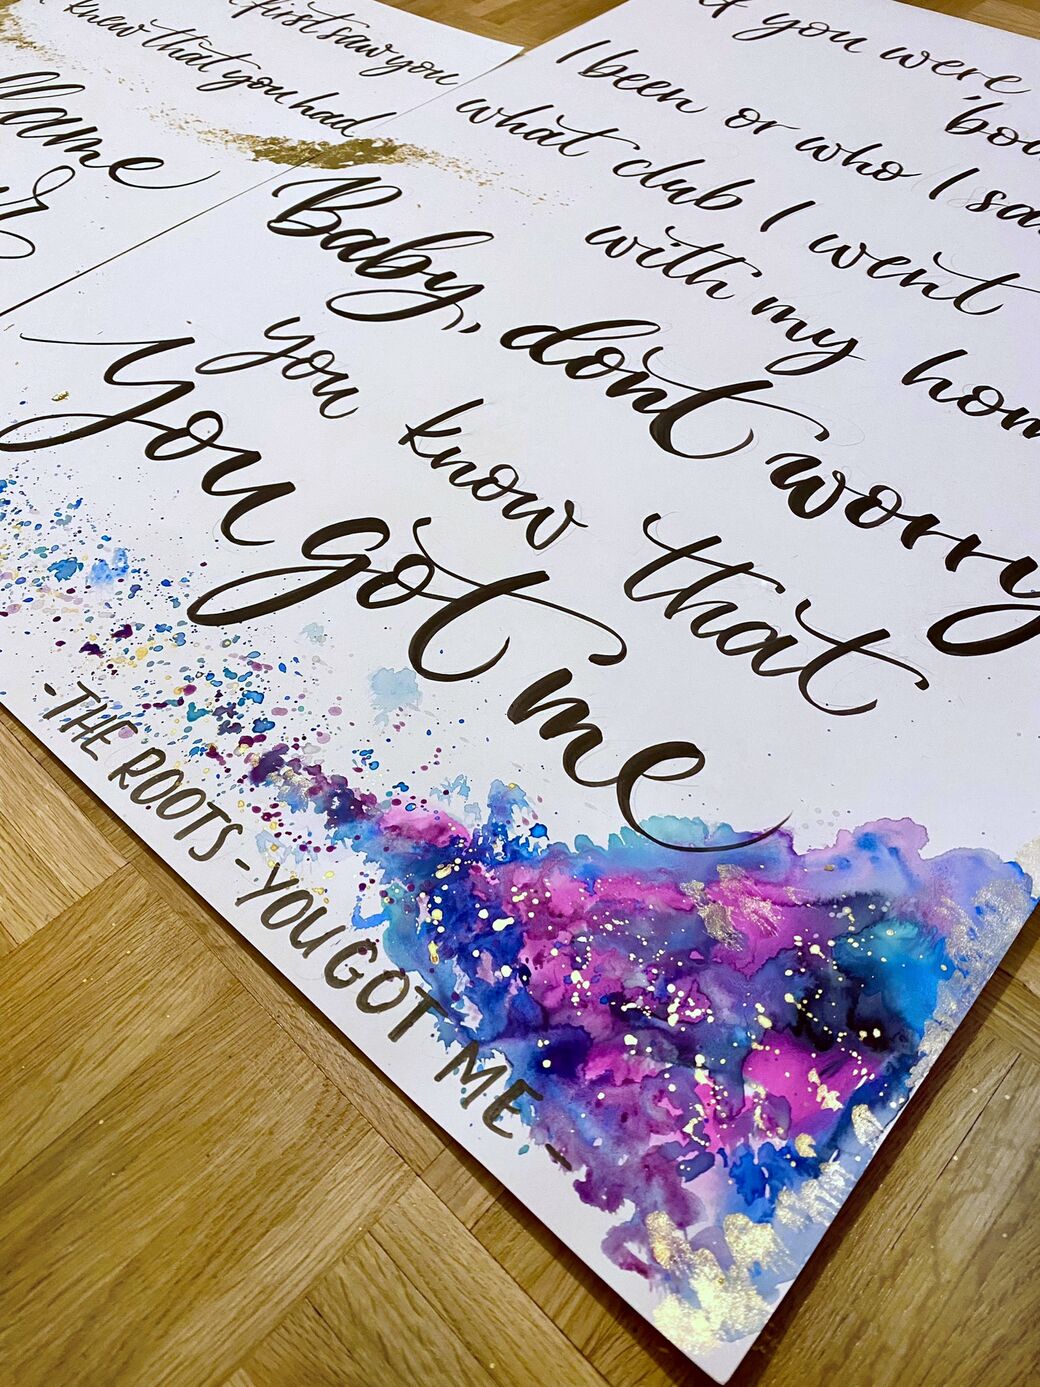 first saw you
knew that you had
you were
'bou
I been or who I sa
what club I went
with my hom
Baby, don't worry
you know that
You got me
-THE ROOTS - YOU GOT ME -